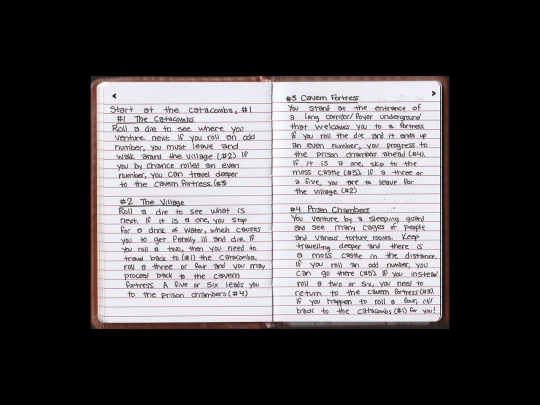 Start at the catacombs, #1
#1 The Catacombs
Roll a die to see where you
venture next. If you roll an odd
number, you must leave and
walk around the village (#2). If
you by chance rolled an even
number, you can travel deeper
to the cavern fortress. (#3)
#2 The Village
Roll a die to see what is
next. If it is a one, you stop
for a drink of water, which causes
you to get fatally ill and die. If
you roll a two, then you need to
travel back to (#1) the catacombs.
roll a three or four and you may
proceed back to the cavern
fortress. A five or six leads you
to the prison chambers (#4)
#3 Cavern Fortress
You stand at the entrance of
a long corridor/foyer underground
that welcomes you to a fortress.
If you roll the die and it ends up
an even number, you progress to
the prison chambers ahead (#4).
If it is a one, skip to the
moss castle (#5). If a three or
a five, you are to leave for
the village. (#2)
#4 Prison Chambers
You venture by a sleeping guard
and see many cages of people
and various torture rooms. Keep
travelling deeper and there is
a moss castle in the distance.
If you roll an odd number, you
can go there (#5). If you instead
roll a two or six, you need to
return to the cavern fortress (#3).
If you happen to roll a four, it's
back to the catacombs (#1) for you!